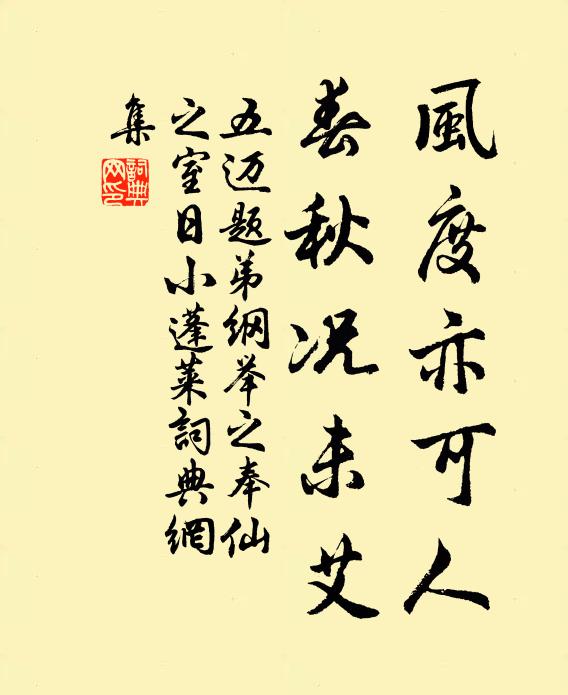 風度亦可人
春秋况未艾
五迈题弟纲举之奉仙
之室日小蓬莱詞典網
集
詞典网印